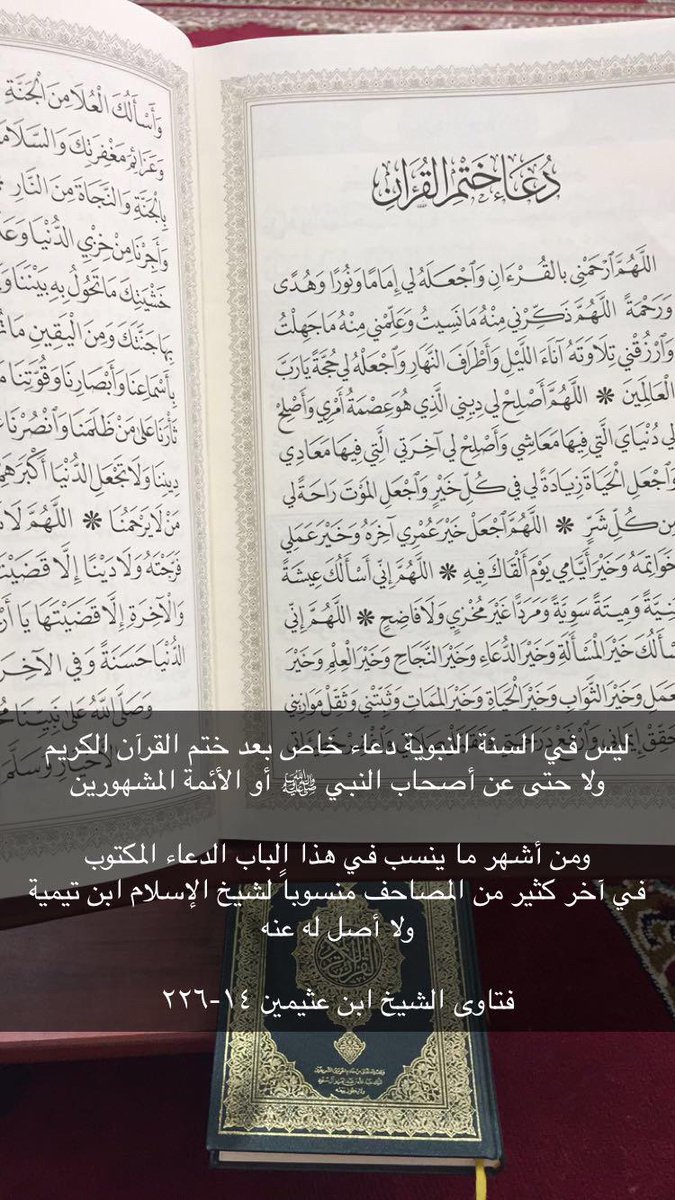 دُعَاءُ خَتْمِ القُرْآنِ
اللَّهُمَّ ٱرْحَمْنِي بِالقُرْءَانِ وَٱجْعَلهُ لِي إِمَامًا وَنُورًا وَهُدًى
وَرَحْمَةً اللَّهُمَّ ذَكِّرْنِي مِنْهُ مَا نَسِيتُ وَعَلِّمْنِي مِنْهُ مَا جَهِلْتُ
وَٱرْزُقْنِي تِلَاوَتَهُ آنَاءَ اللَّيْلِ وَأَطْرَافَ النَّهَارِ وَٱجْعَلْهُ لِي حُجَّةً يَارَبَّ
الْعَالَمِينَ * اللَّهُمَّ أَصْلِحْ لِي دِينِي الَّذِي هُوَ عِصْمَةُ أَمْرِي وَأَصْلِحْ
لِي دُنْيَايَ الَّتِي فِيهَا مَعَاشِي وَأَصْلِحْ لِي آخِرَتِي الَّتِي فِيهَا مَعَادِي
وَٱجْعَلِ الْحَيَاةَ زِيَادَةً لِي فِي كُلِّ خَيْرٍ وَٱجْعَلِ الْمَوْتَ رَاحَةً لِي
مِن كُلِّ شَرٍّ * اللَّهُمَّ ٱجْعَلْ خَيْرَ عُمْرِي آخِرَهُ وَخَيْرَ عَمَلِي
خَوَاتِمَهُ وَخَيْرَ أَيَّامِي يَوْمَ أَلْقَاكَ فِيهِ * اللَّهُمَّ إِنِّي أَسْأَلُكَ عِيشَةً
هَنِيَّةً وَمِيتَةً سَوِيَّةً وَمَرَدًّا غَيْرَ مُخْزِي وَلَا فَاضِحٍ * اللَّهُمَّ إِنِّي
أَسْأَلُكَ خَيْرَ الْمَسْأَلَةِ وَخَيْرَ الدُّعَاءِ وَخَيْرَ النَّجَاحِ وَخَيْرَ الْعِلْمِ وَخَيْرَ
الْعَمَلِ وَخَيْرَ الثَّوَابِ وَخَيْرَ الْحَيَاةِ وَخَيْرَ الْمَمَاتِ وَثَبِّتْنِي وَثَقِّلْ مَوَازِينِي
وَأَسْأَلُكَ الْعُلَا مِنَ الْجَنَّةِ
وَعَزَائِمَ مَغْفِرَتِكَ وَالسَّلَامَةَ
بِالْجَنَّةِ وَالنَّجَاةَ مِنَ النَّارِ
وَأَجِرْنَا مِنْ خِزْيِ الدُّنْيَا وَعَذَابِ
خَشْيَتِكَ مَا تَحُولُ بِهِ بَيْنَنَا
بِهَا جَنَّتَكَ وَمِنَ الْيَقِينِ مَا
بِأَسْمَاعِنَا وَأَبْصَارِنَا وَقُوَّتِنَا
ثَأْرَنَا عَلَى مَنْ ظَلَمَنَا وَٱنْصُرْنَا
دِينِنَا وَلَا تَجْعَلِ الدُّنْيَا أَكْبَرَ
مَنْ لَا يَرْحَمُنَا * اللَّهُمَّ لَا
فَرَّجْتَهُ وَلَا دَيْنًا إِلَّا قَضَيْتَهُ
وَالْآخِرَةِ إِلَّا قَضَيْتَهَا يَا
الدُّنْيَا حَسَنَةً وَفِي الْآخِرَةِ
وَصَلَّى اللَّهُ عَلَى نَبِيِّنَا
ليس في السنة النبوية دعاء خاص بعد ختم القرآن الكريم
ولا حتى عن أصحاب النبي ﷺ أو الأئمة المشهورين
ومن أشهر ما ينسب في هذا الباب الدعاء المكتوب
في آخر كثير من المصاحف منسوباً لشيخ الإسلام ابن تيمية
ولا أصل له عنه
فتاوى الشيخ ابن عثيمين ١٤-٢٢٦